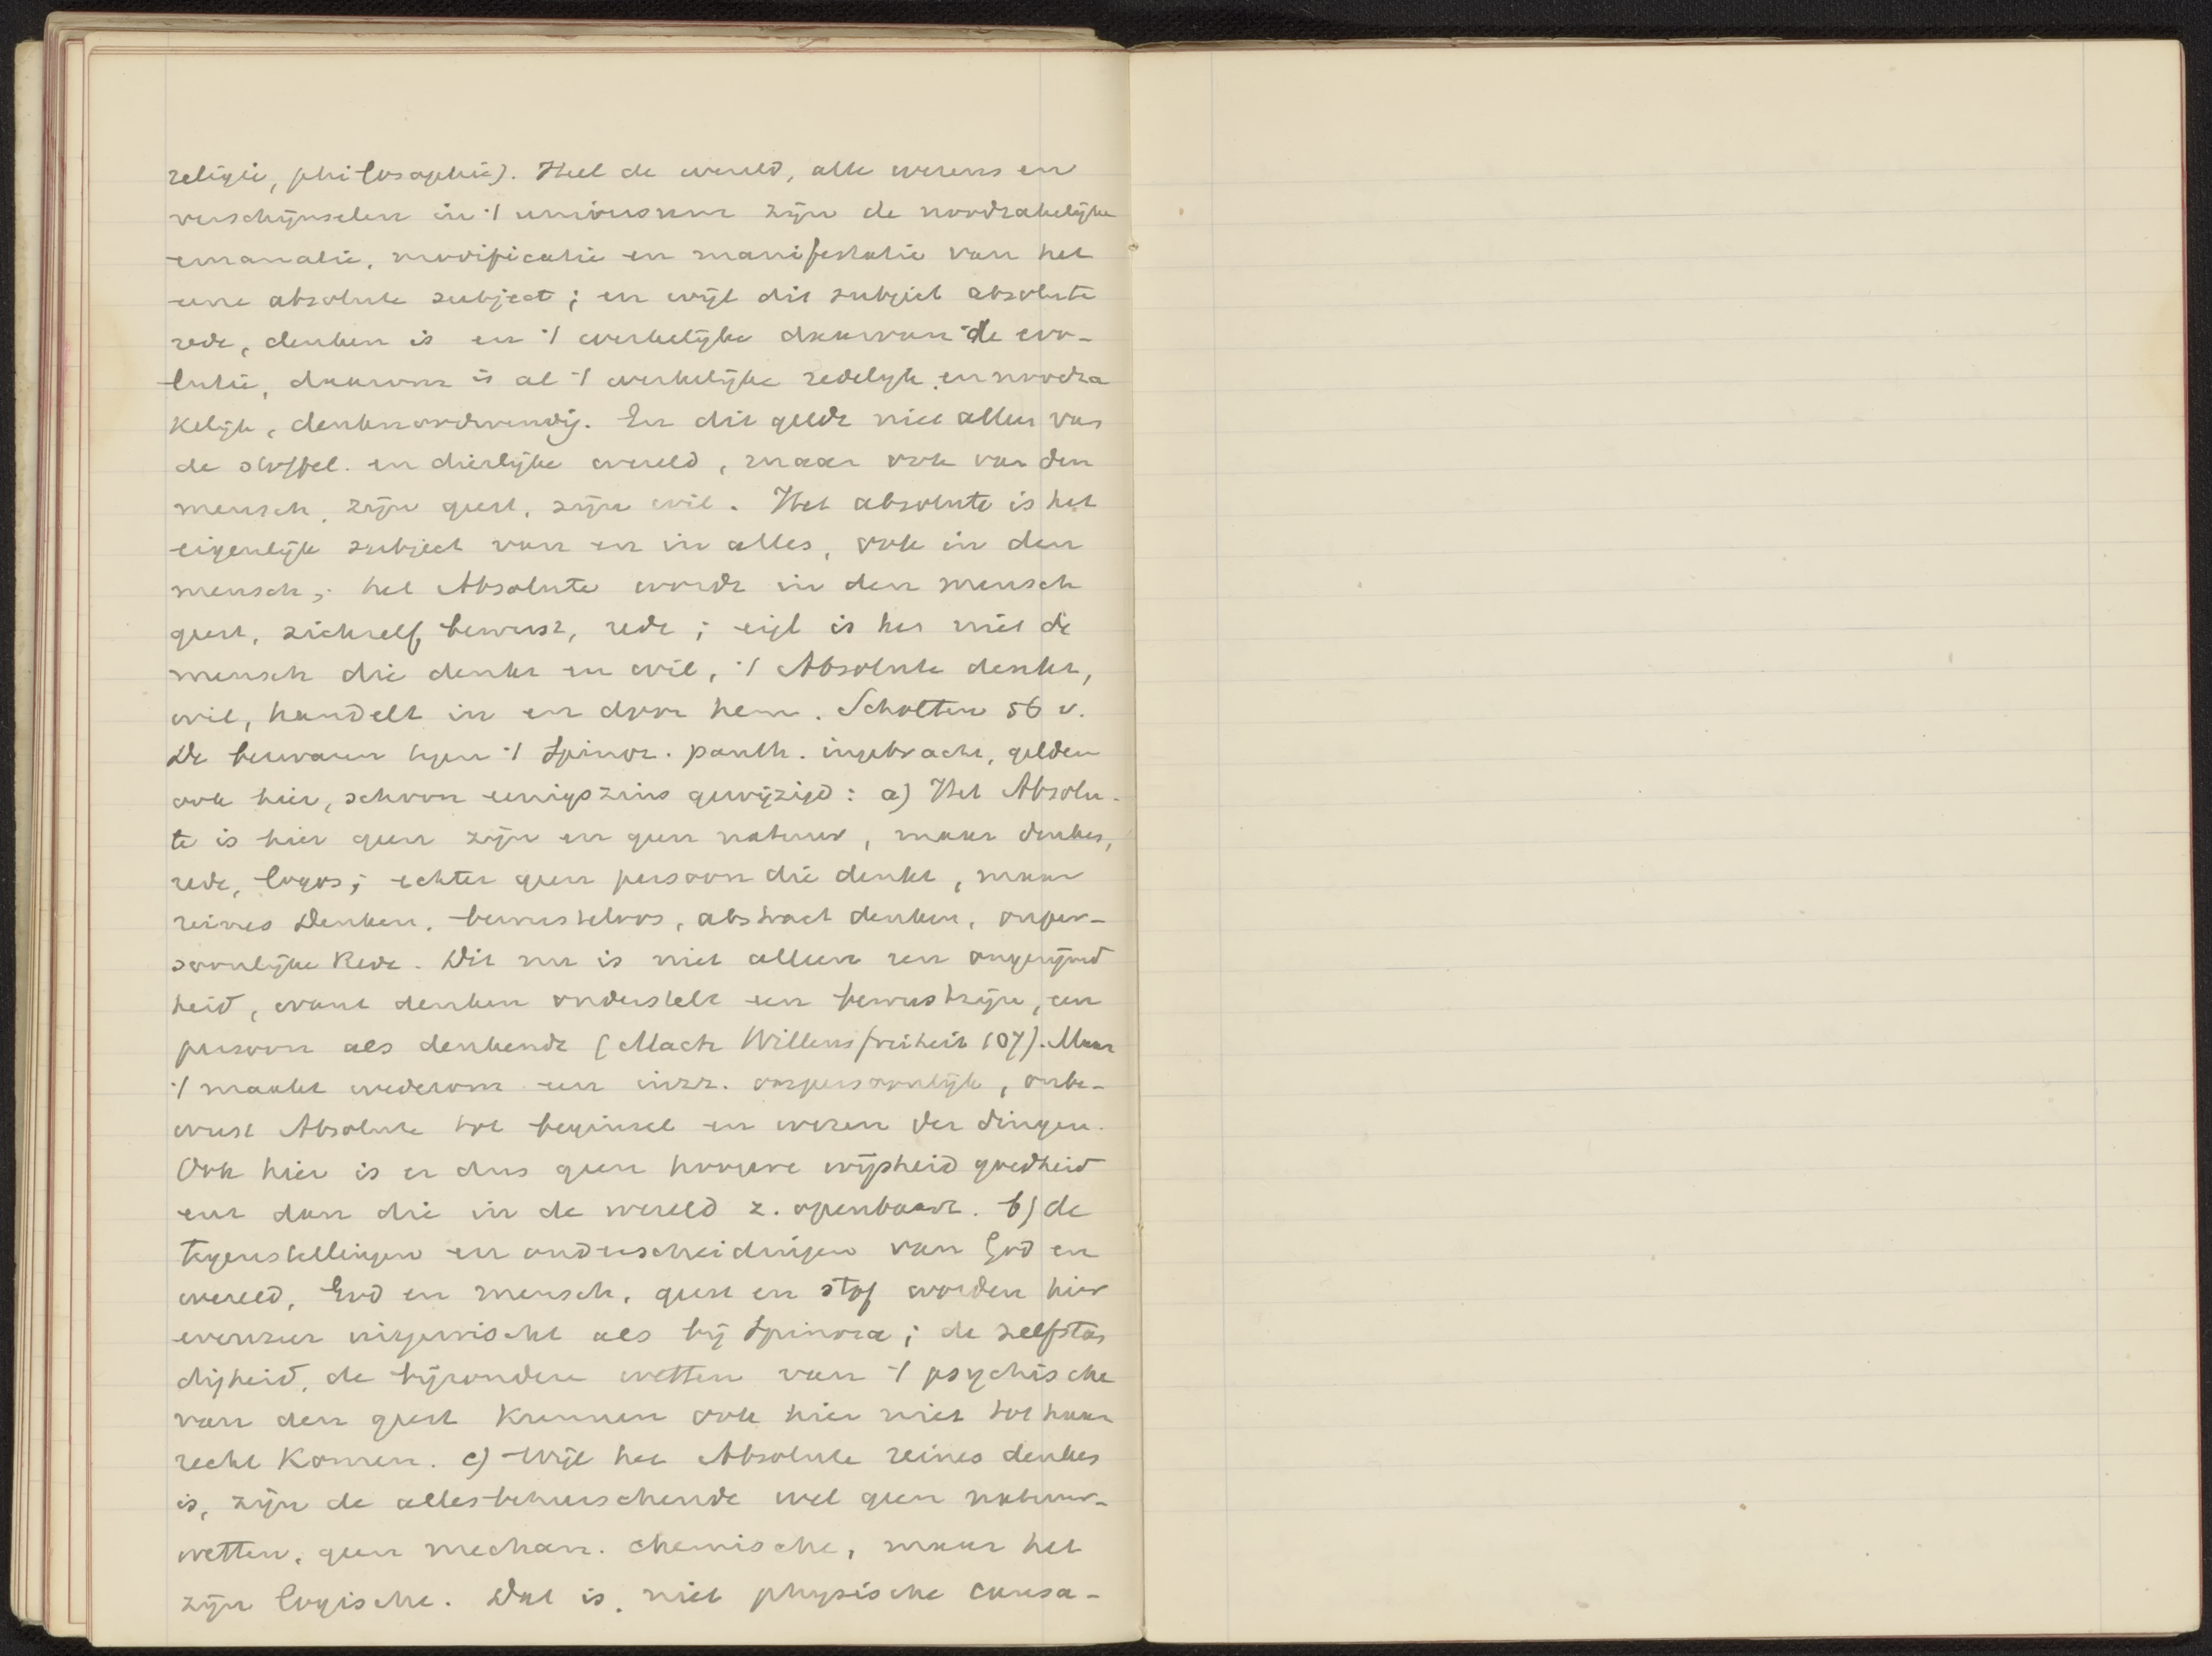 religie, philosophie). Heel de wereld, alle wezens en
verschijnselen in 't universum zijn de noodzakelijke
emanatie, modificatie en manifestatie van het
eene absolute subject; en wijl dit subject absolute
rede, denken is en 't werkelijke daarvan de evo-
lutie, daarom is al 't werkelijke redelijk en noodza
kelijk, denknoodwendig. En dit geldt niet alleen van
de stoffel. en dierlijke wereld, maar ook van den
mensch, zijn geest, zijn wil. Het absolute is het
eigenlijk subject van en in alles, ook in den
mensch; het Absolute wordt in den mensch
geest, zichzelf bewust, rede; eigl is het niet de
mensch die denkt en wil, 't Absolute denkt,
wil, handelt in en door hem. Scholten 56 v.
De bezwaren tegen 't Spinoz. panth. ingebracht, gelden
ook hier, schoon eenigszins gewijzigd: a) Het Absolu-
te is hier geen zijn en geen natuur, maar denken,
rede, logos; echter geen persoon die denkt, maar
reines Denken, bewusteloos, abstract denken, onper-
soonlijke Rede. Dit nu is niet alleen een ongerijmd
heid, want denken onderstelt een bewustzijn, een
persoon als denkende (Mach Willensfreiheit 107). Maar
't maakt wederom een onpersoonlijk, onbe-
wust Absolute tot beginsel en wezen der dingen.
Ook hier is er dus geen hoogere wijsheid goedheid
enz dan die in de wereld z. openbaart. b) de
tegenstellingen en onderscheidingen van God en
wereld, God en mensch, geest en stof worden hier
evenzeer uitgewischt als bij Spinoza; de zelfstan
digheid, de bijzondere wetten van 't psychische
van den geest kunnen ook hier niet tot haar
recht komen. c) Wijl het Absolute reines denken
is, zijn de allesbeheerschende wel geen natuur-
wetten, geen mechan. chemische, maar het
zijn logische. Dat is, niet physische causa-